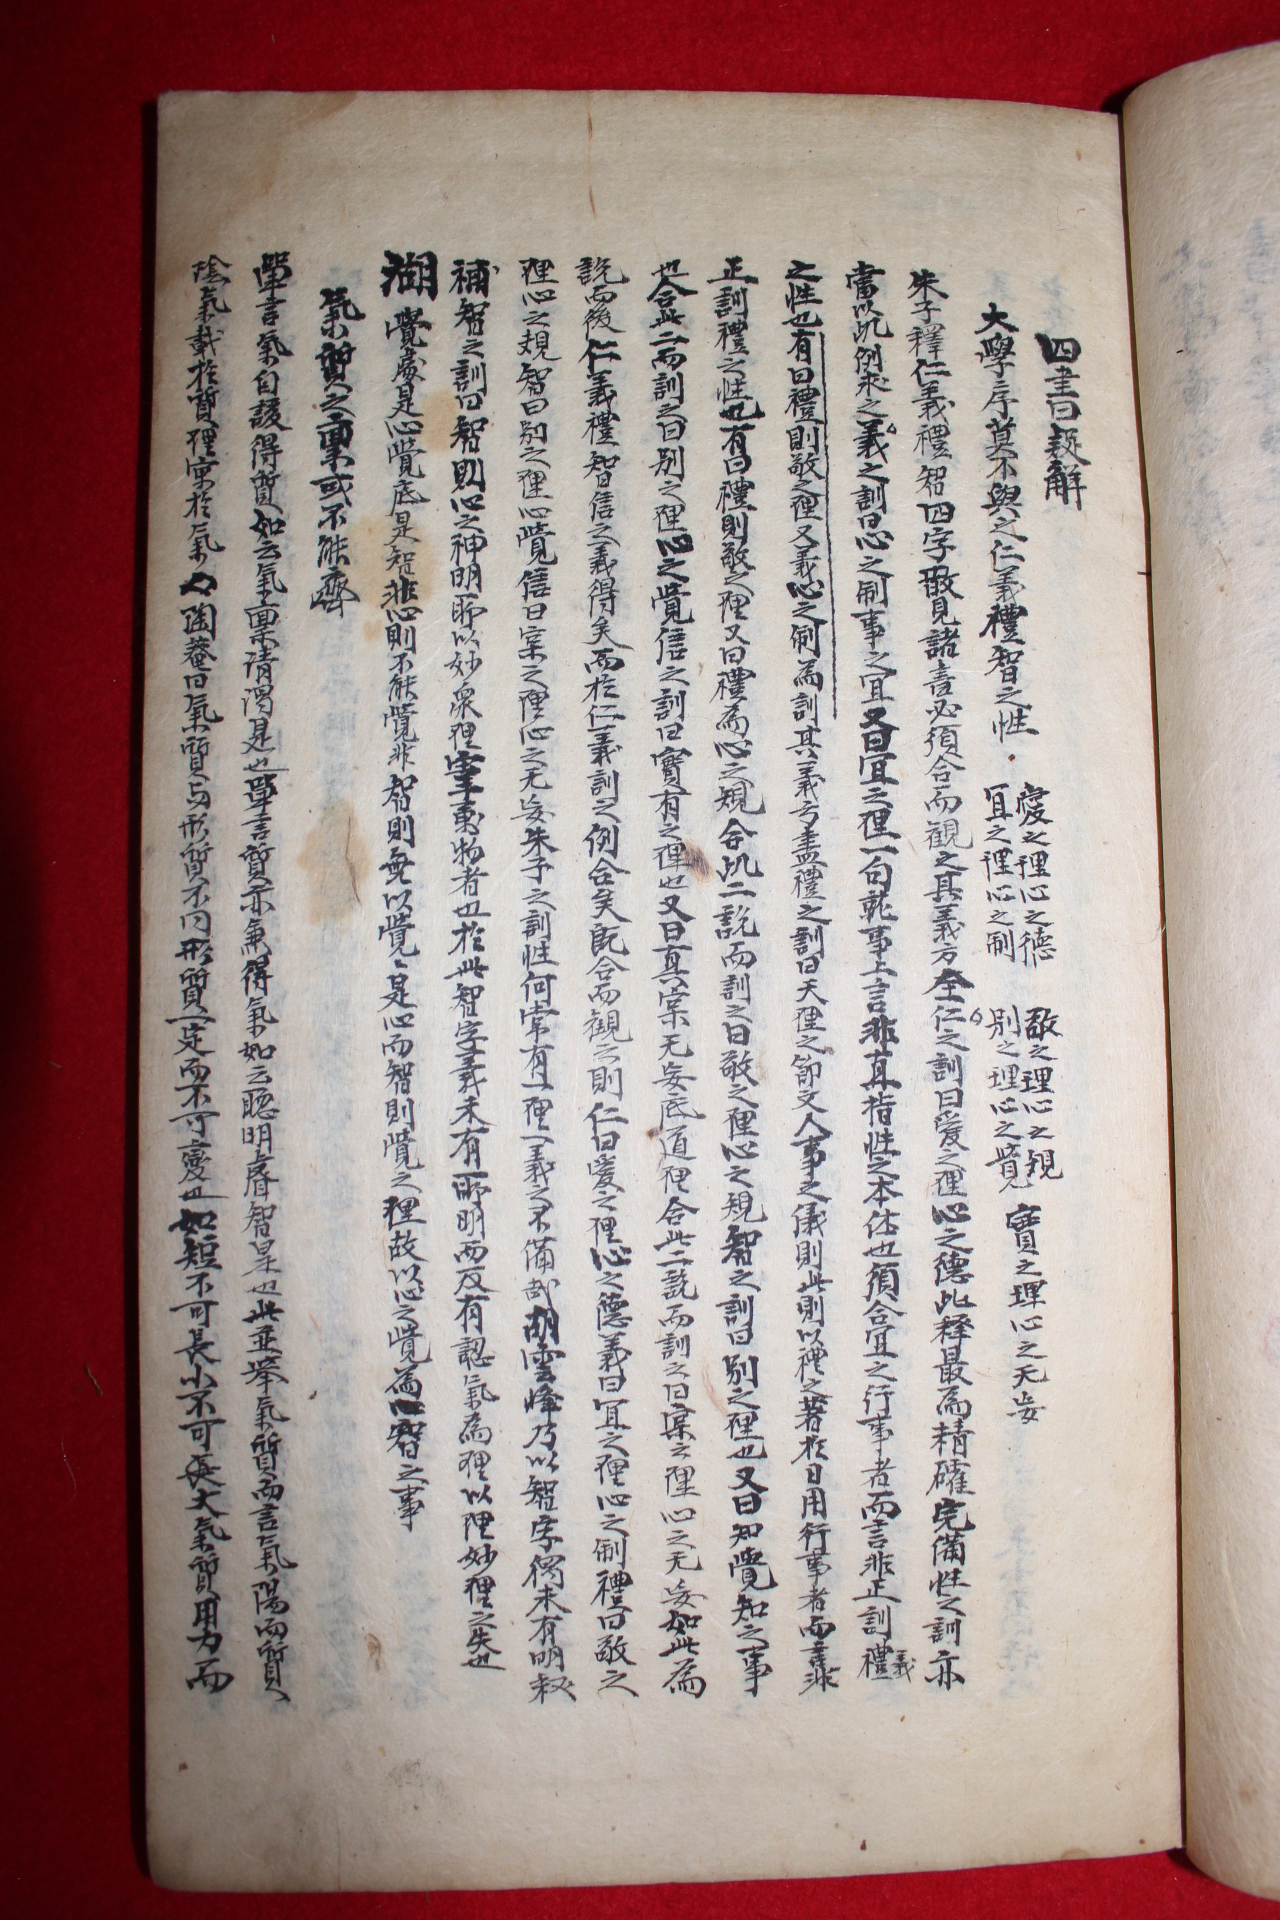 四書曰疑解
大學序莫不與之仁義禮智之性
愛之理心之德
宜之理心之制
敬之理心之規
別之理心之覺
實之理心之无妄
朱子釋仁義禮智四字散見諸書必須合而觀之其義方全仁之訓曰愛之理心之德此釋最爲精確完備性之訓亦
當以此例求之義之訓曰心之制事之宜又曰宜之理一句就事上言非直指性之本体也須合宜之行事者而言非正訓禮義
之性也有曰禮則敬之理又義心之制爲訓其義方盡禮之訓曰天理之節文人事之儀則此則以禮之著於日用行事者而言非
正訓禮之性也有曰禮則敬之理又曰禮爲心之規合此二說而訓之曰敬之理心之規智之訓曰別之理也又曰知覺知之事
也合此二而訓之曰別之理心之覺信之訓曰實有之理也又曰真宲无妄底道理合此二說而訓之曰宲之理心之无妄如此爲
說而後仁義禮智信之義得矣而於仁義訓之例合矣旣合而觀之則仁曰愛之理心之德義曰宜之理心之制禮曰敬之
理心之規智曰別之理心覺信曰宲之理心之无妄朱子之訓性何常有一理一義之不備哉胡雲峰乃以智字獨未有明釋
補智之訓曰智則心之神明所以妙衆理宰萬物者也於此智字義未有所明而反有認氣爲理以理妙理之失也
湖 覺處是心覺底是智非心則不能覺非智則無以覺覺是心而智則覺之理故以心之覺爲心智之事
氣質之稟或不能齊
單言氣自該得質如云氣稟清濁是也單言質亦兼得氣如云聰明睿智是也此並擧氣質而言氣陽而質
陰氣載於質理寓於氣 陶菴曰氣質與形質不同形質一定而不可變也如短不可長小不可長大氣質用力而